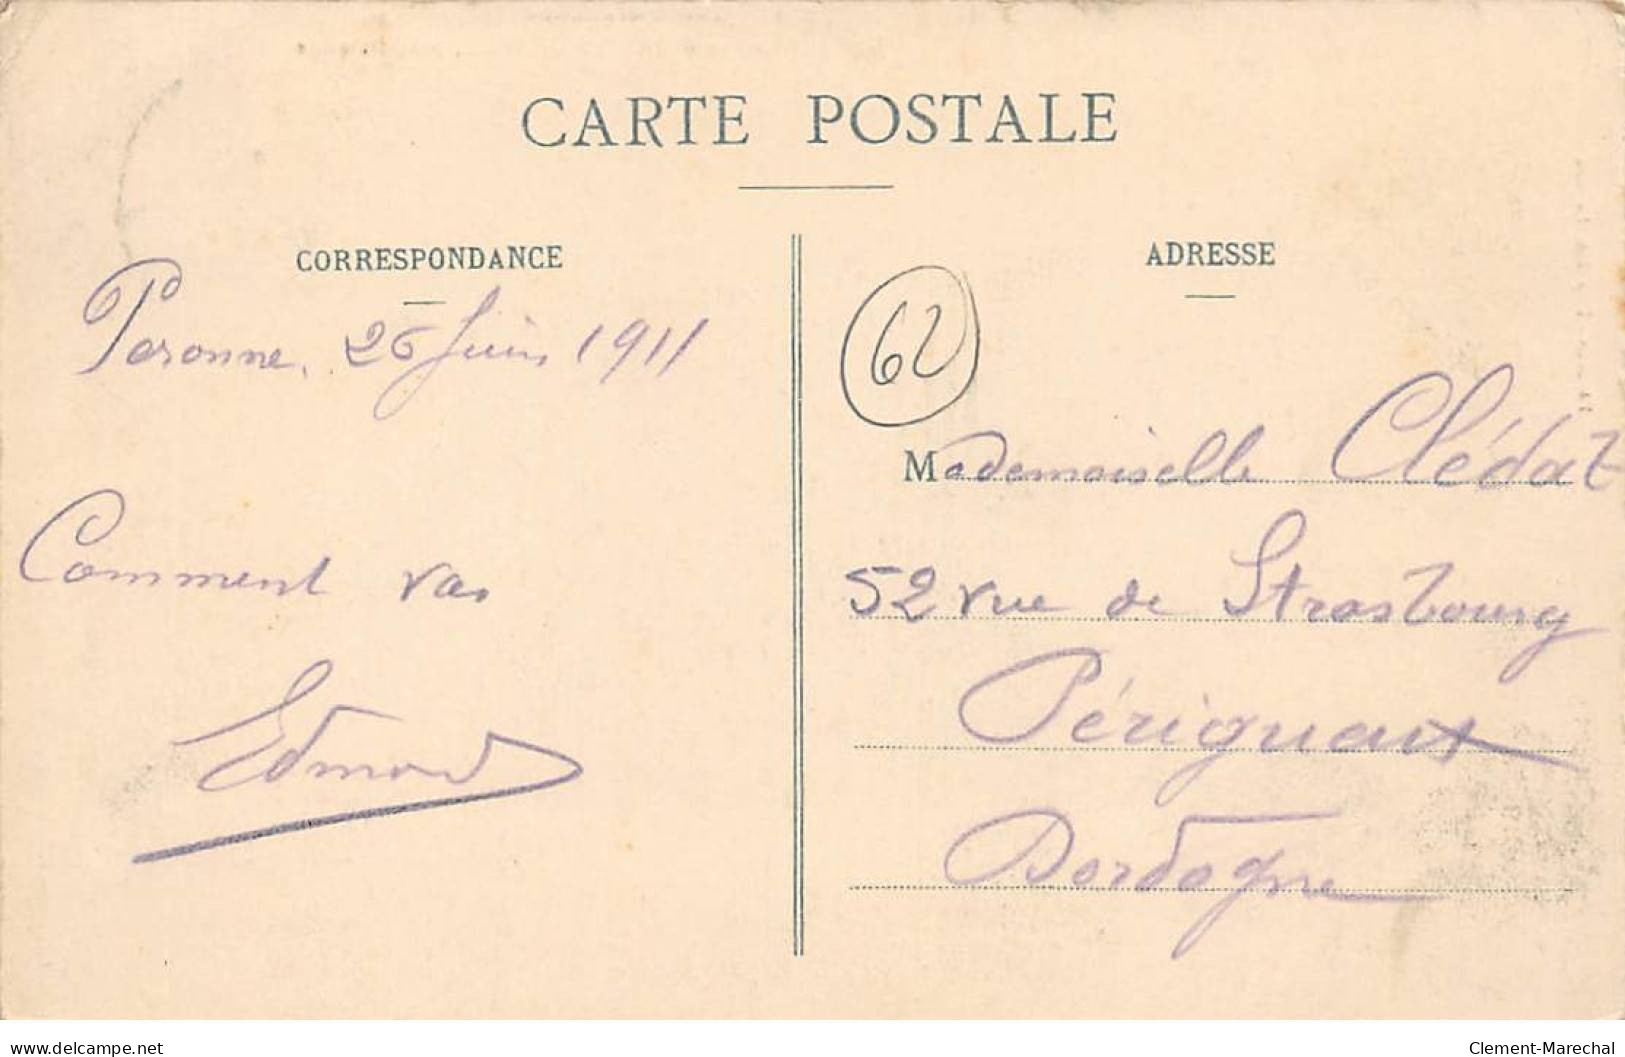 CARTE POSTALE
CORRESPONDANCE
Peronne, 26 Juin 1911
Comment vas
Edmond
ADRESSE
62
Mademoiselle Clédat
52 rue de Strasbourg
Périgueux
Dordogne
www.delcampe.net
Clement-Marechal